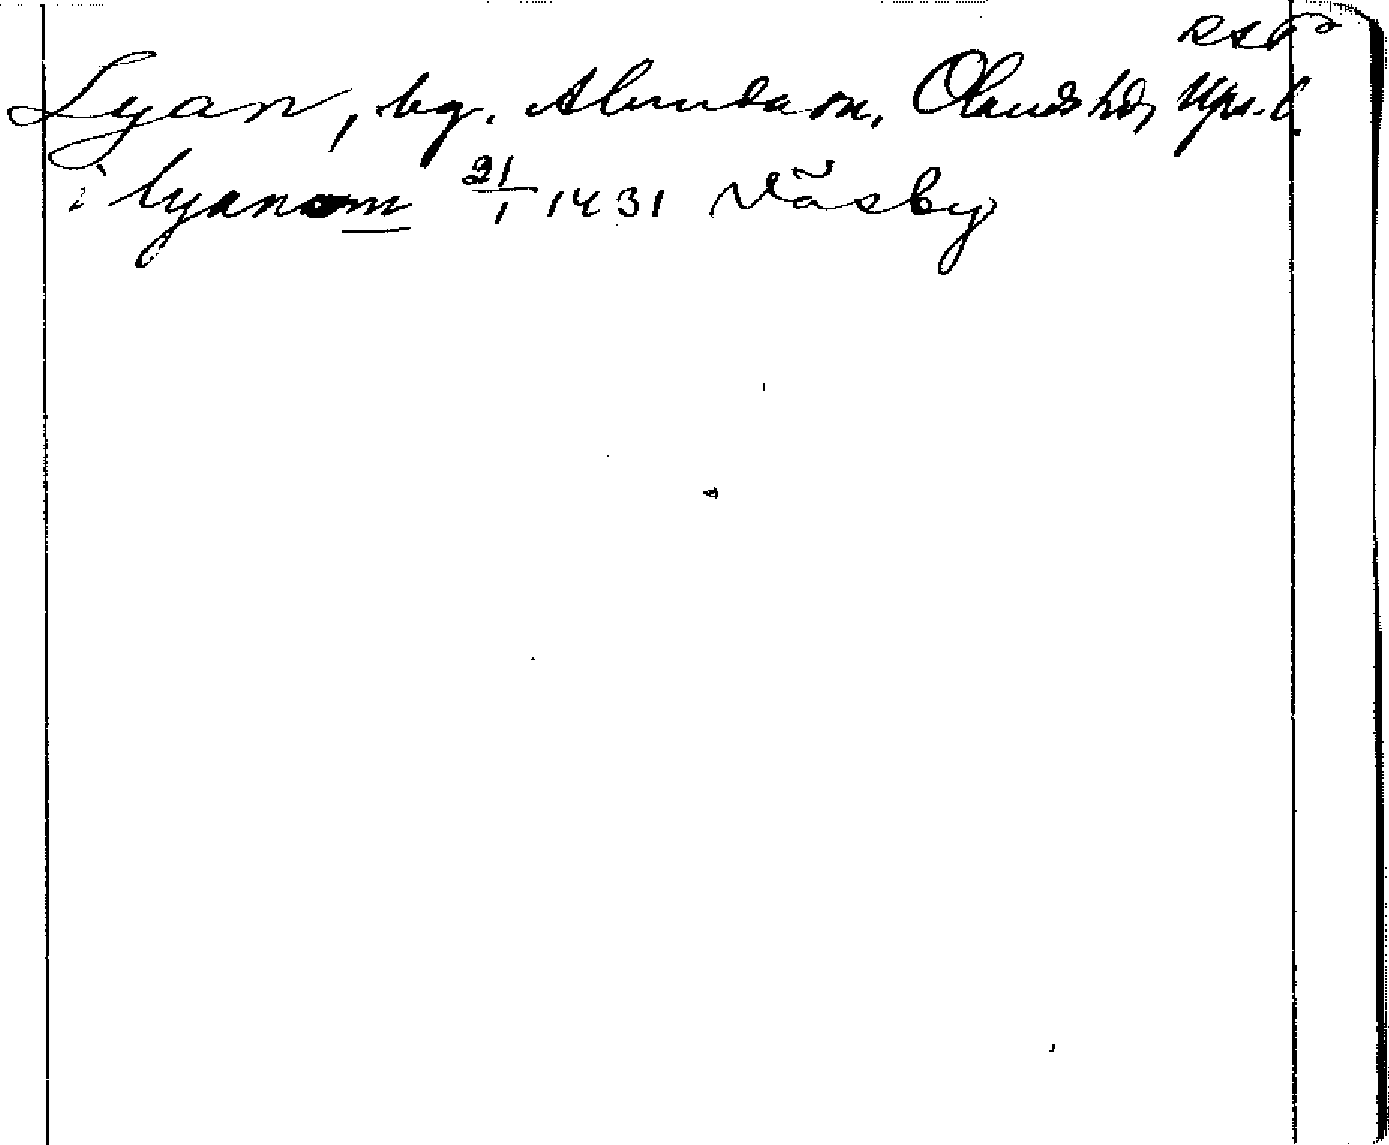 Lyan, by. Alunda sn, Olands hd, Ups. l.
i lyanom 21/1 1431 Väsby